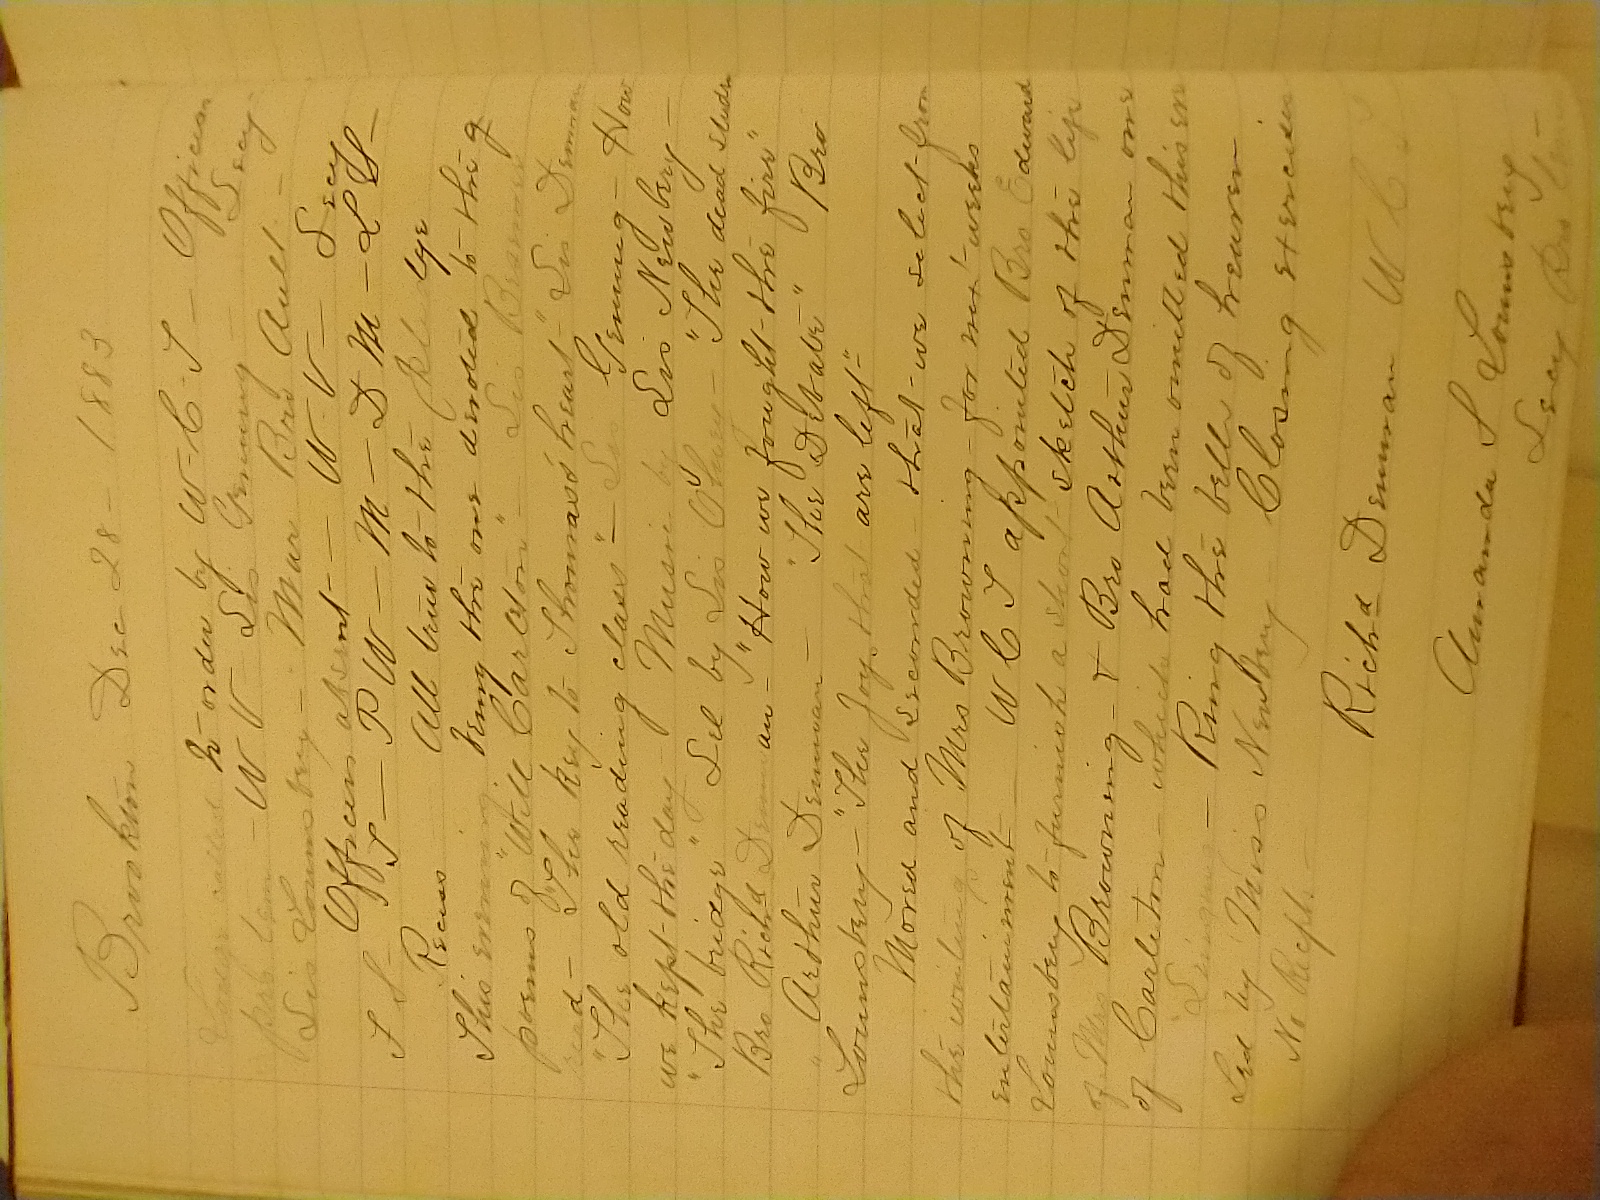 Brookton Dec 28 - 1883
Lodge called to order by W-C-T - Officers
pro tem - W V Sis Genung - Secy -
Sis Lounsbery - Mar Bro Ault -
Officers absent - W V - Secy
F S - T - P W - M - D M - L S -
Recess All true to the pledge
This evening being the one devoted to the
poems of "Will Carlton" - Sis
read - "The key to Thomas's heart" Sis Denman
"The old reading class" - Sis Genung - How
we kept the day - Music by Sis Newbery -
"The bridge" Sel by Sis Olney - "The dead studen
Bro Richd Denman - "How we fought the fire"
" Arthur Denman - "The Debate" Bro
Lounsbery - "The Joys that are left"
Moved and seconded - that we select from
the writings of Mrs Browning - for next weeks
entertainment - W C T appointed Bro Edward
Lounsbery to furnish a short sketch of the life
of Mrs Browning - & Bro Arthur Denman one
of Carleton - which had been omitted this eve
Singing - Ring the bells of heaven
Led by Miss Newbery - Closing exercises
No Recpts -
Richd Denman W C T
Amanda S Lounsbery
Secy Pro tem